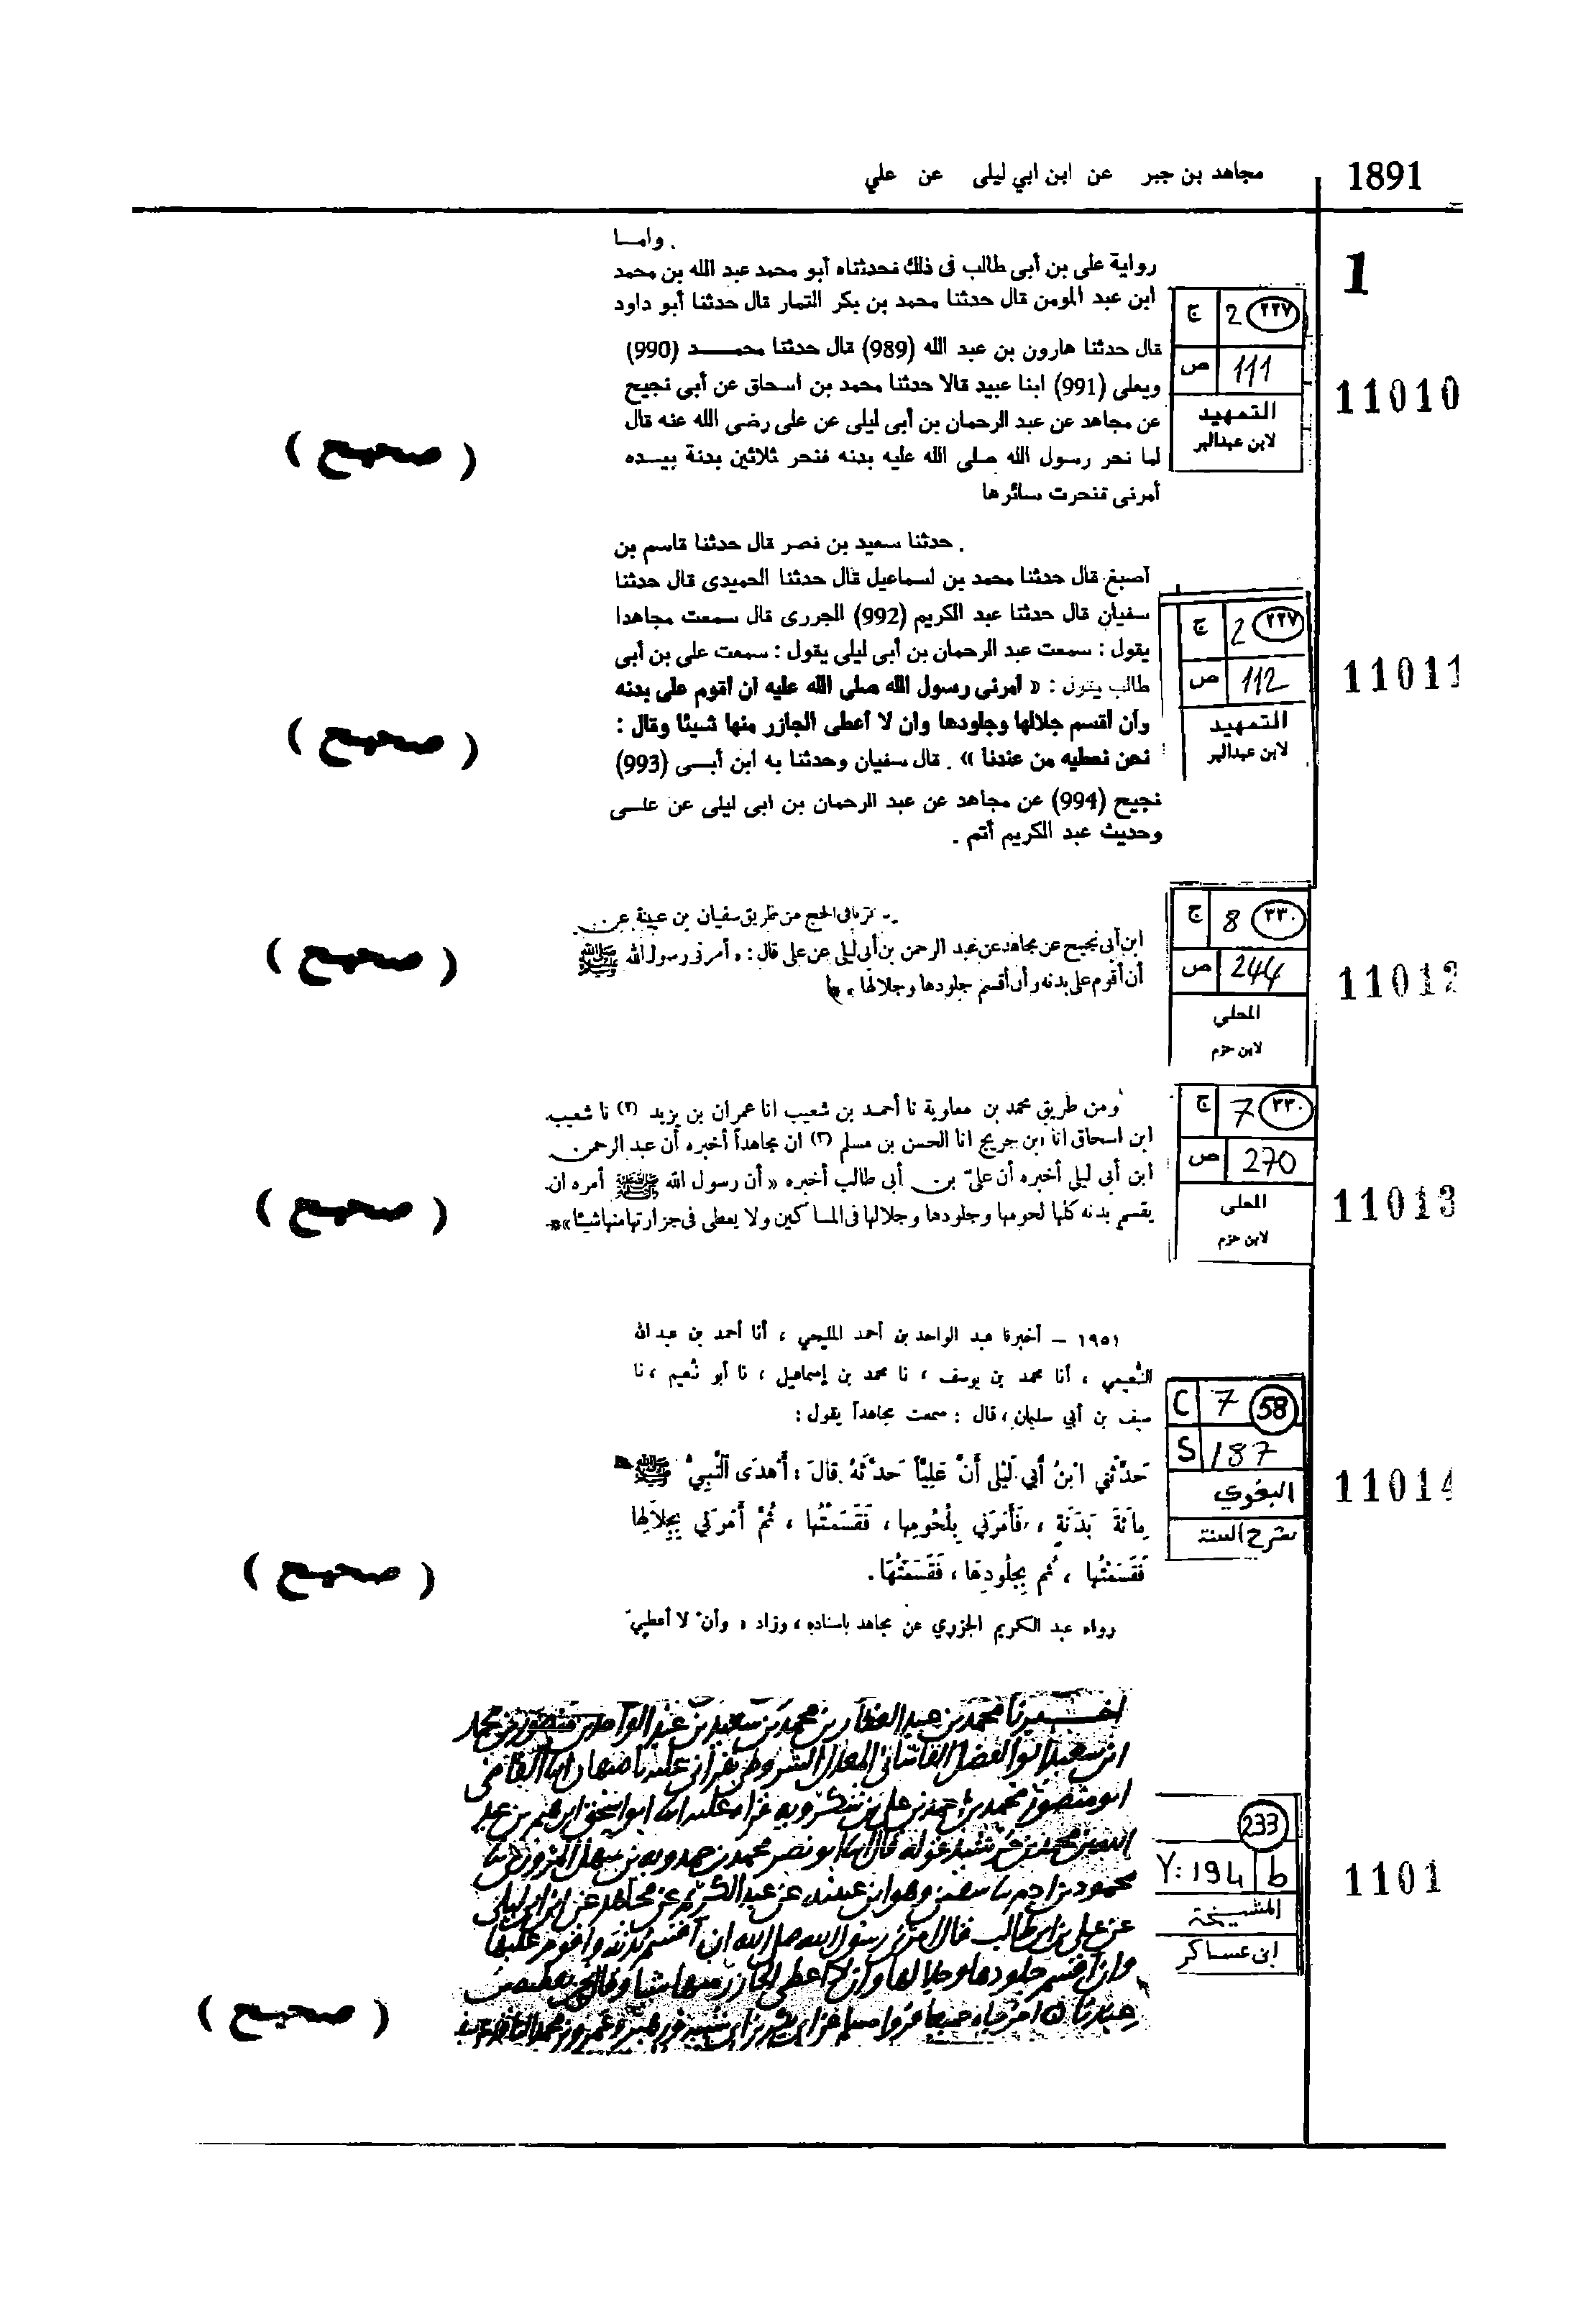 1891
مجاهد بن جبر عن ابن ابي ليلى عن علي
1
. وامـا
رواية على بن أبى طالب فى ذلك فحدثناه أبو محمد عبد الله بن محمد
ابن عبد المومن قال حدثنا محمد بن بكر التمار قال حدثنا أبو داود
قال حدثنا هارون بن عبد الله (989) قال حدثنا محمـــد (990)
ويعلى (991) ابنا عبيد قالا حدثنا محمد بن اسحاق عن أبى نجيح
عن مجاهد عن عبد الرحمان بن أبى ليلى عن على رضى الله عنه قال
لما نحر رسول الله صلى الله عليه بدنه فنحر ثلاثين بدنة بيـده
أمرنى فنحرت سائرها
ج 2 ٢٢٧
ص 111
التمهيد
لابن عبدالبر
11010
( صحيح )
. حدثنا سعيد بن نصر قال حدثنا قاسم بن
أصبغ قال حدثنا محمد بن اسماعيل قال حدثنا الحميدى قال حدثنا
سفيان قال حدثنا عبد الكريم (992) الجررى قال سمعت مجاهدا
يقول : سمعت عبد الرحمان بن أبى ليلى يقول : سمعت على بن أبى
طالب يقول : « أمرنى رسول الله صلى الله عليه ان أقوم على بدنه
وأن أقسم جلالها وجلودها وان لا أعطى الجازر منها شيئا وقال :
نحن نعطيه من عندنا » . قال سفيان وحدثنا به ابن أبـى (993)
نجيح (994) عن مجاهد عن عبد الرحمان بن ابى ليلى عن علـى
وحديث عبد الكريم أتم .
ج 2 ٢٢٧
ص 112
التمهيد
لابن عبدالبر
11011
( صحيح )
فى الحج من طريق سفيان بن عيينة عن
ابن أبى نجيح عن مجاهد عن عبد الرحمن بن أبى ليلى عن على قال : « أمرنى رسول الله ﷺ
أن أقوم على بدنه وأن أقسم جلودها وجلالها »
ج 8 ٣٣٠
ص 244
المحلى
لابن حزم
11012
( صحيح )
ومن طريق محمد بن معاوية نا أحمد بن شعيب انا عمران بن يزيد (٢) نا شعيب
ابن اسحاق انا ابن جريج انا الحسن بن مسلم (٣) ان مجاهداً أخبره أن عبد الرحمن
ابن أبى ليلى أخبره أن علىّ بن أبى طالب أخبره « أن رسول الله ﷺ أمره ان
يقسم بدنه كلها لحومها وجلودها وجلالها فى المساكين ولا يعطى فى جزارتها منها شيئا »
ج 7 ٣٣٠
ص 270
المحلى
لابن حزم
11013
( صحيح )
١٩٥١ – أخبرنا عبد الواحد بن أحمد المليحي ، أنا أحمد بن عبد الله
النُّعيمي ، أنا محمد بن يوسف ، نا محمد بن إسماعيل ، نا أبو نُعيم ، نا
سيف بن أبي سليمان ، قال : سمعت مجاهداً يقول :
حَدَّثَني ابْنُ أَبي لَيْلى أَنَّ عَلِيّاً حَدَّثَهُ قالَ : أَهْدَى النَّبِيُّ ﷺ
مِائَةَ بَدَنَةٍ ، فَأَمَرَني بِلُحُومِها ، فَقَسَمْتُها ، ثُمَّ أَمَرَني بِجِلَالِها
فَقَسَمْتُها ، ثُم بِجُلُودِها ، فَقَسَمْتُها .
رواه عبد الكريم الجزري عن مجاهد بإسناده ، وزاد « وأنْ لا أعطيَ
C 7 58
S 187
البغوي
شرح السنة
11014
( صحيح )
اخبرنا محمد بن عبد الغفار بن محمد بن سعيد بن عبد الواحد بن منصور بن محمد
عن علي بن ابي طالب قال امرني رسول الله صلى الله ان اقسم بدنه واقوم عليها
وان اقسم جلودها وجلالها وان لا اعطي الجازر منها شيا وقال نحن نعطيه من
233
Y: 194 b
المشيخة
ابن عساكر
1101
( صحيح )